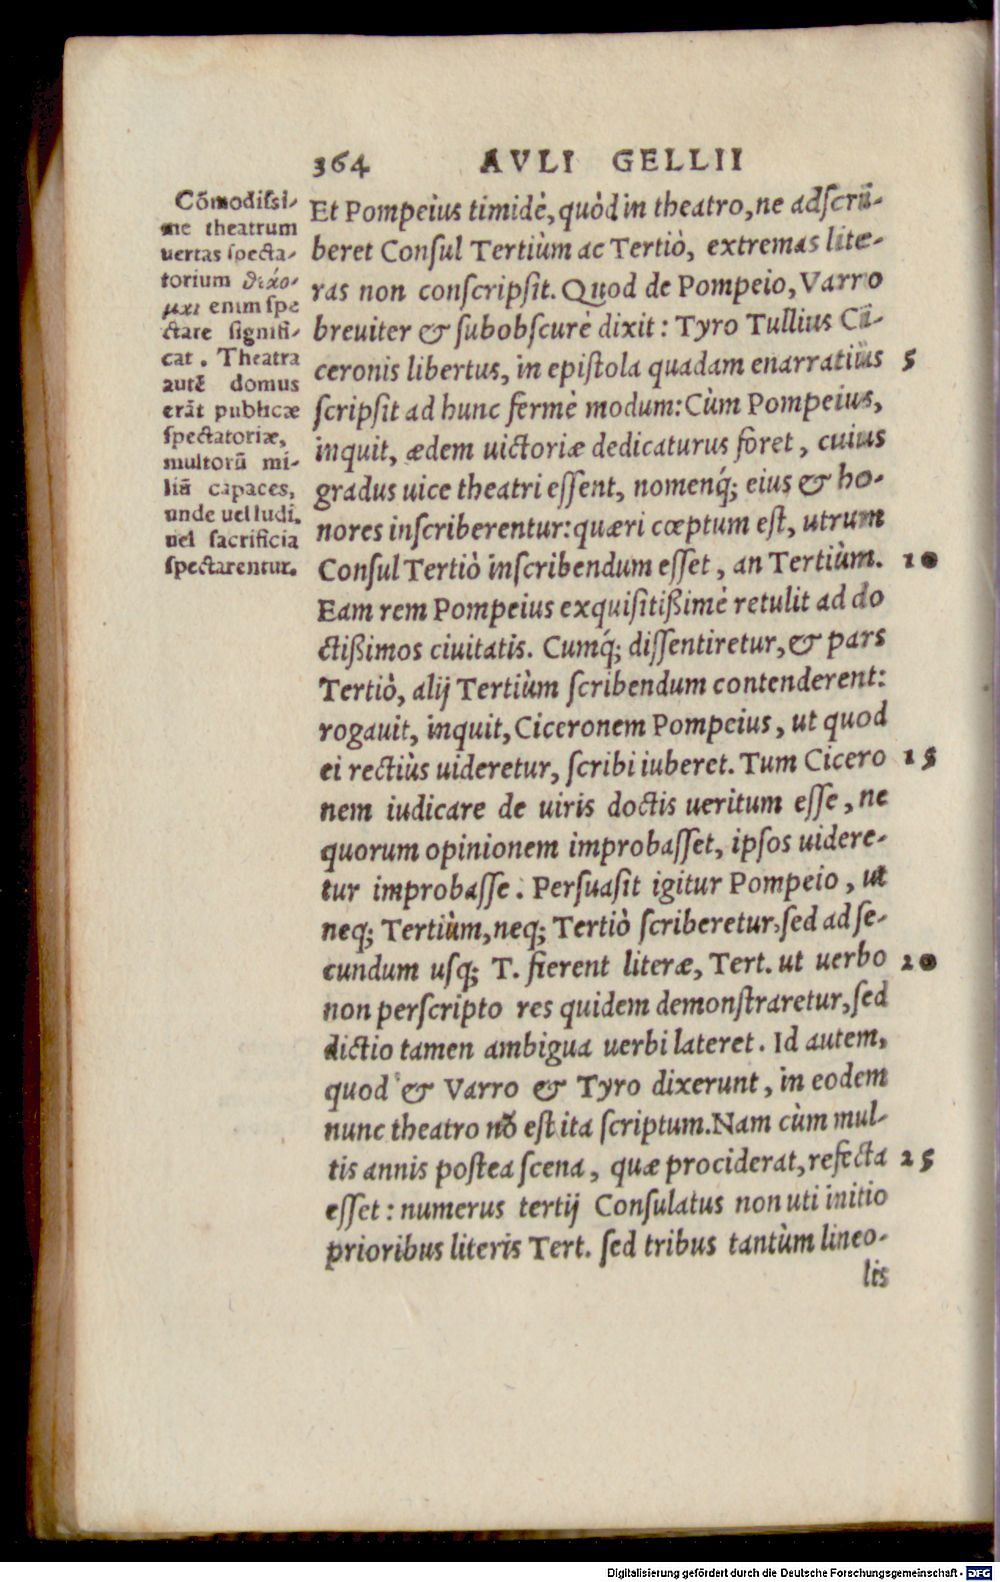 364 AVLI GELLII
Cõmodissi-
me theatrum
uertas specta-
torium θεάο-
μαι enim spe
ctare signifi-
cat. Theatra
autẽ domus
erãt publicæ
spectatoriæ,
multorũ mi-
liũ capaces,
unde uel ludi,
uel sacrificia
spectarentur.
Et Pompeius timidè, quòd in theatro, ne adscri-
beret Consul Tertiùm ac Tertiò, extremas lite-
ras non conscripsit. Quod de Pompeio, Varro
breuiter & subobscurè dixit: Tyro Tullius Ci-
ceronis libertus, in epistola quadam enarratius 5
scripsit ad hunc fermè modum: Cùm Pompeius,
inquit, ædem uictoriæ dedicaturus foret, cuius
gradus uice theatri essent, nomenq́; eius & ho-
nores inscriberentur: quæri cœptum est, utrum
Consul Tertiò inscribendum esset, an Tertiùm. 10
Eam rem Pompeius exquisitißimè retulit ad do
ctißimos ciuitatis. Cumq́; dissentiretur, & pars
Tertiò, alij Tertiùm scribendum contenderent:
rogauit, inquit, Ciceronem Pompeius, ut quod
ei rectiùs uideretur, scribi iuberet. Tum Cicero 15
nem iudicare de uiris doctis ueritum esse, ne
quorum opinionem improbasset, ipsos uidere-
tur improbasse. Persuasit igitur Pompeio, ut
neq; Tertiùm, neq; Tertiò scriberetur, sed ad se-
cundum usq; T. fierent literæ, Tert. ut uerbo 20
non perscripto res quidem demonstraretur, sed
dictio tamen ambigua uerbi lateret. Id autem,
quod & Varro & Tyro dixerunt, in eodem
nunc theatro nõ est ita scriptum. Nam cùm mul-
tis annis postea scena, quæ prociderat, refecta 25
esset: numerus tertij Consulatus non uti initio
prioribus literis Tert. sed tribus tantùm lineo-
lis
Digitalisierung gefördert durch die Deutsche Forschungsgemeinschaft - DFG